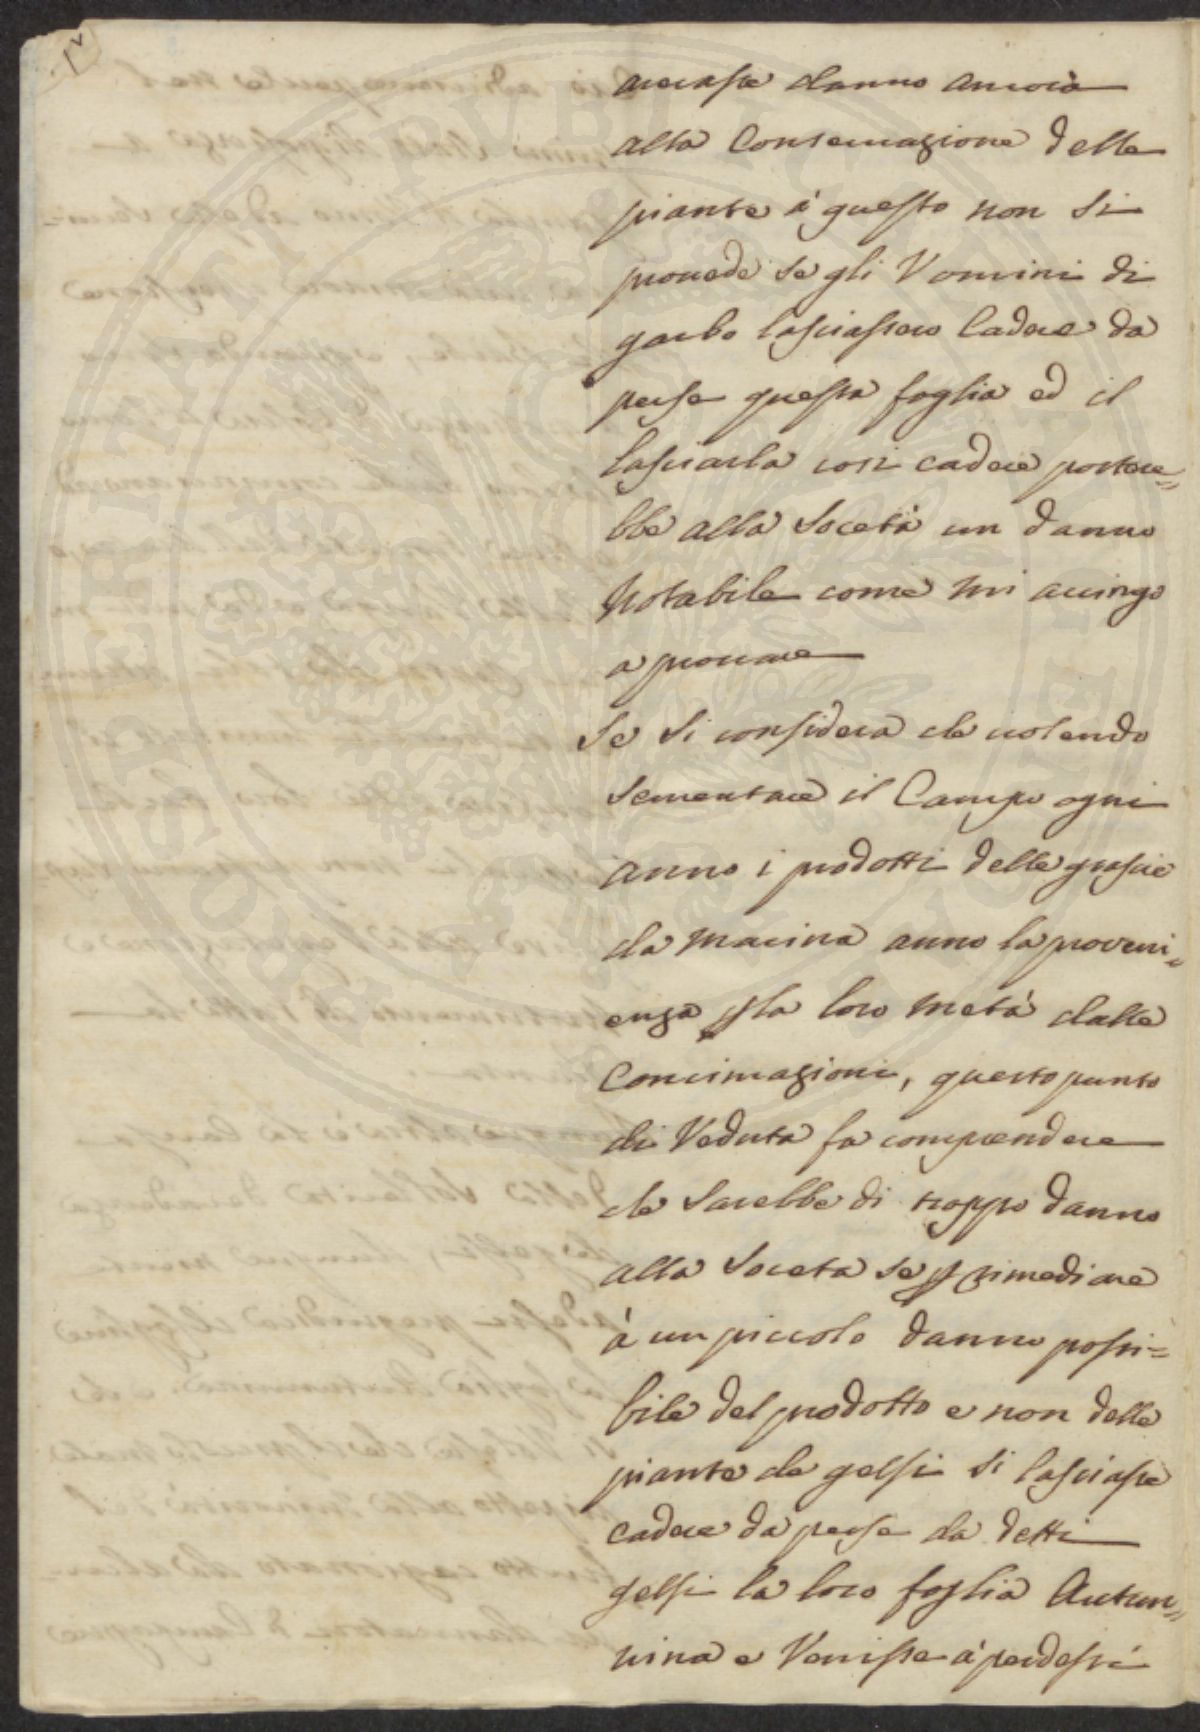 1v
arecasse danno ancora
alla Conservazione delle
piante à questo non si
provede se gli Vomini di
garbo lasciassero Cadere da
perse questa foglia ed il
lasciarla cosi cadere portere=
bbe alla Soceta un danno
Notabile come mi accingo
a provare
Se Si considera che volendo
Sementare il Campo ogni
anno i prodotti delle grascie
da Macina anno la proveni=
enza p la loro Metà dalle
Concimazioni, questo punto
di Veduta fa comprendere
che Sarebbe di troppo danno
alla Soceta se p rimediare
à un piccolo danno possi=
bile del prodotto e non delle
piante de gelsi Si lasciasse
cadere da perse da detti
gelsi la loro foglia Autun=
nina e Venisse à perdessi